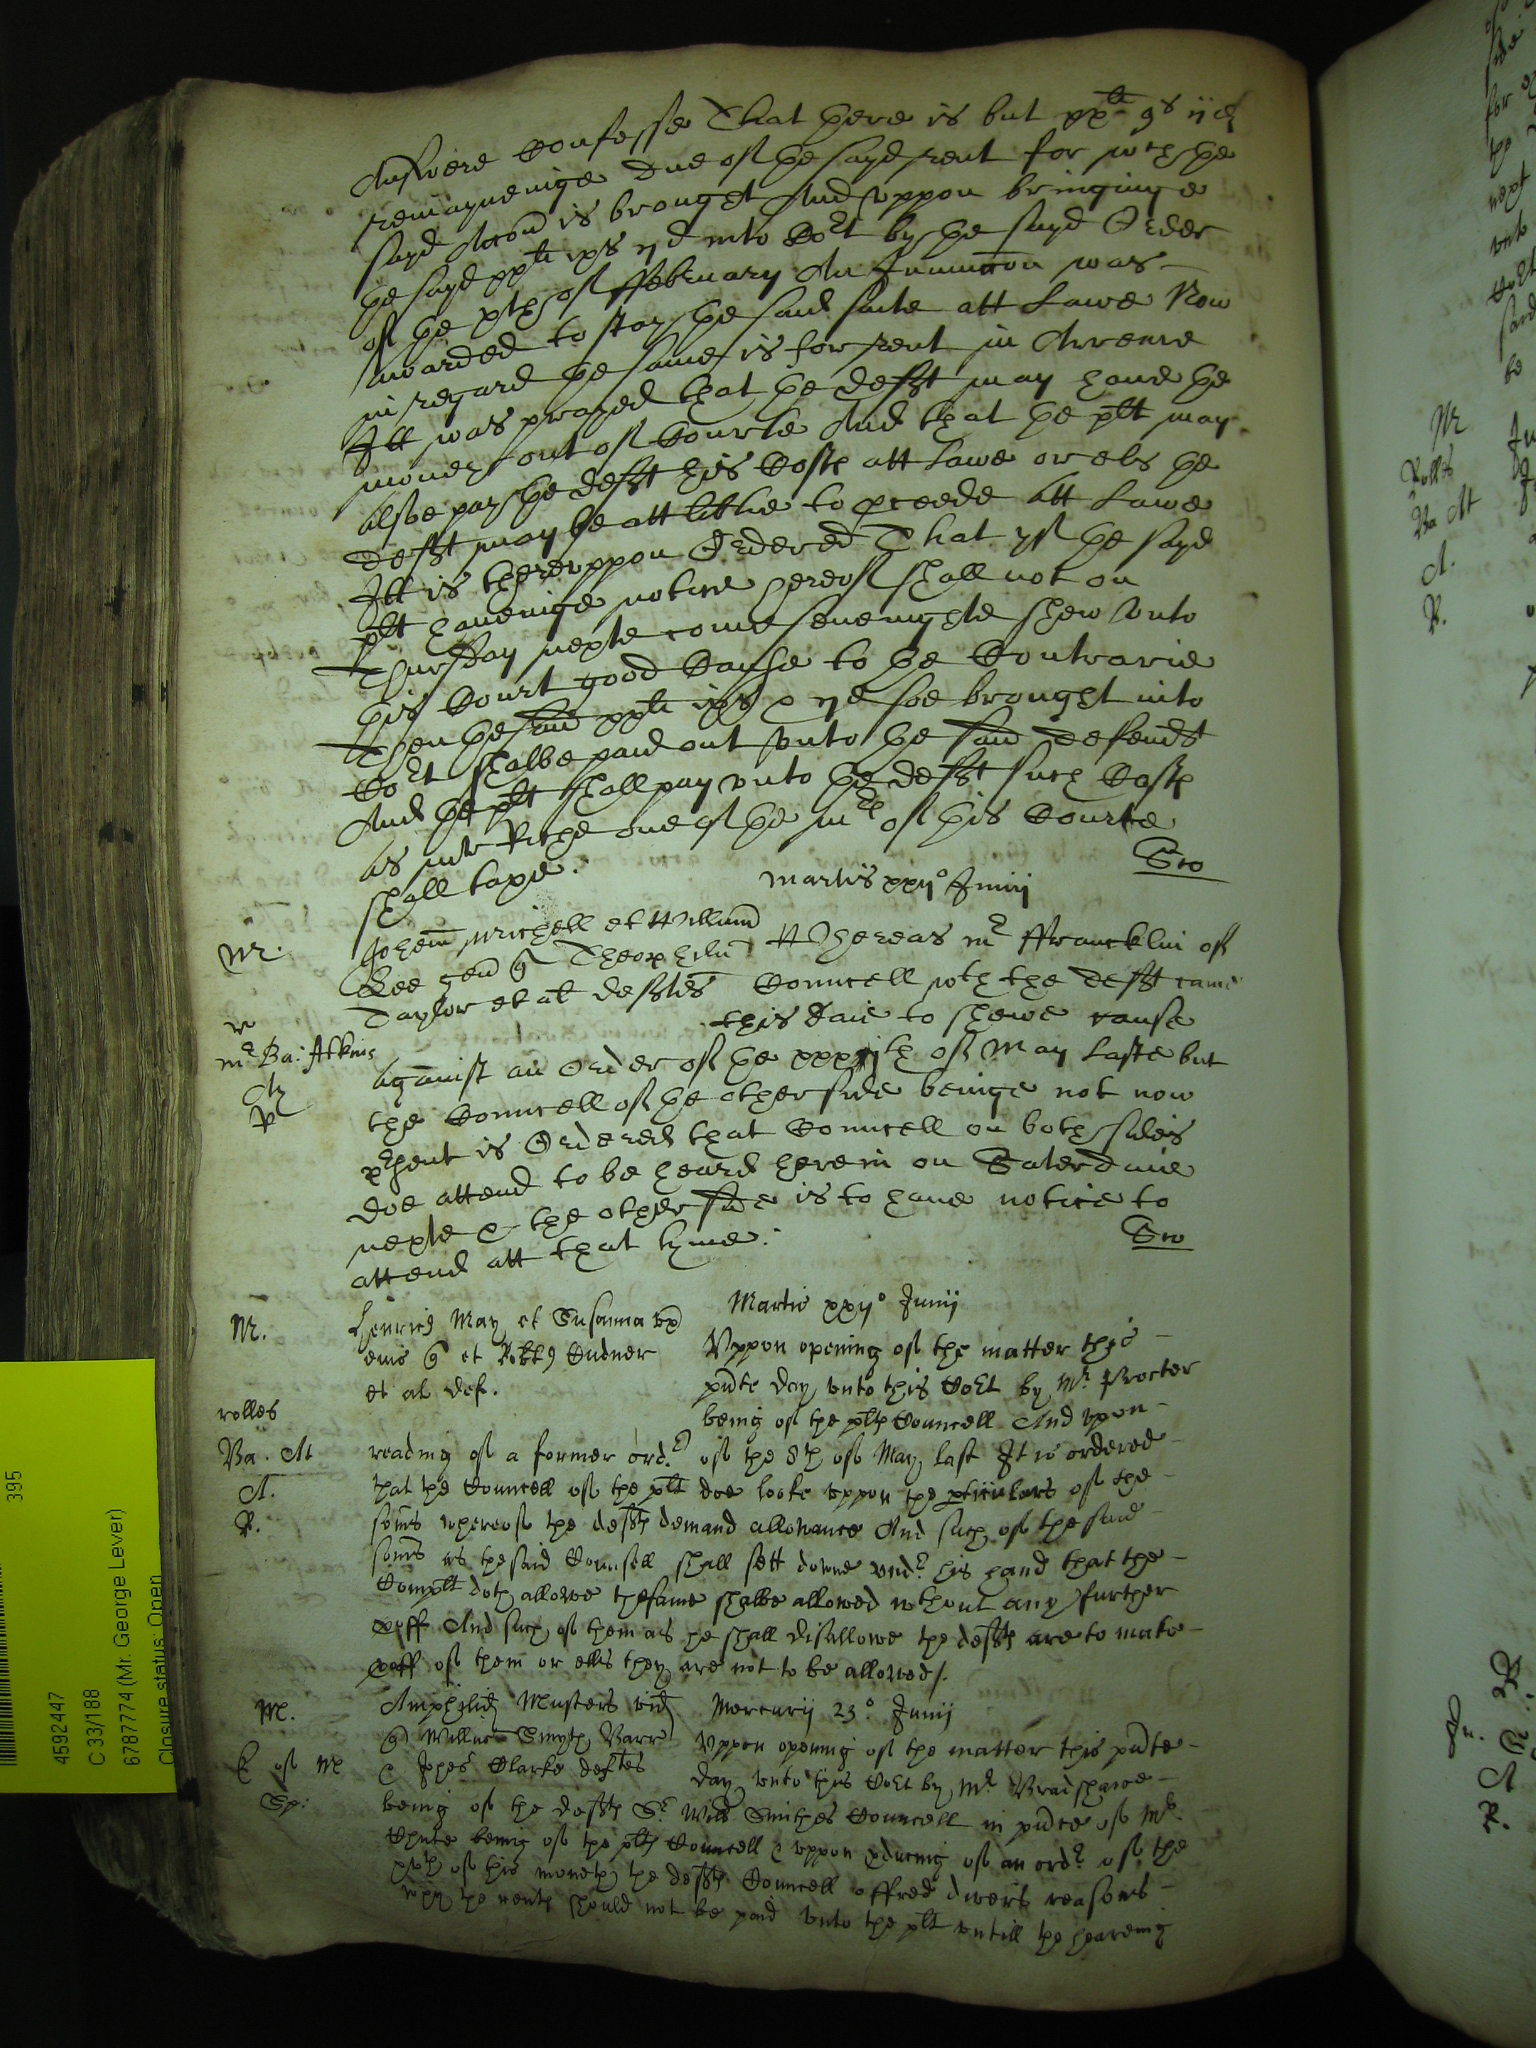 Answere Confesse That there is but xxli 9s ijd
remayneinge due of the sayd rent for wch the
sayd Accon is brought And uppon bringinge
the sayd xxli ixs ijd into Cort by the sayd Order
of the xth of ffebruary An Iniunccon was
awarded to stay the said suite att Lawe Now
in regard the same is for rent in Arreare
Itt was prayed that the defft may have the
money out of Courte And that the plt may
alsoe pay the defft his Costes att Lawe or els the
defft may be att libtie to pceede att Lawe
Itt is thereuppon Ordered That yf the sayd
plt haveinge notice hereof shall not on
Thursday nexte come sevenighte shew unto
this Court good Cause to the Contrarie
Then the said xxli ixs & ijd soe brought into
Cort shalbe paid out unto the said defendt
And the plt shall pay unto the defft such Costes
as mr Riche one of the mrs of this Courte
shall taxe.
Martis xxij° Junij
Mr.
Johem Michell et Willum
Lee gen q Theophilu
Taylor et al deffdes
Whereas mr ffrancklin of
Councell wth the defft came
this daie to shewe cause
mr Ba: Atkins
A
R
against an Order of the xxxjth of May Laste but
the Councell of the other side beinge not now
psent is Ordered that Councell on both sides
doe attend to be heard herein on Saterdaie
nexte & the other side is to have notice to
attend att that tyme.
Martis xxij° Junij
M.
Henric May et Susanna ux
eius q et Robtus Cudner
et al def.
Uppon opening of the matter this
pnte day unto this Cort by Mr Procter
being of the plts Councell And upon
rolles
Ba. At
A.
R.
reading of a former ordr of the 8th of May last It is ordered
that the Councell of the plt doe looke uppon the pticulars of the
somes whereof the deffts demand allowance And such of the said
somes as the said Councell shall sett downe undr his hand that the
Complt doth allowe the same shalbe allowed wthout any further
proff And such of them as he shall disallowe the deffts are to make
proff of them or ells they are not to be allowed/.
M.
Amphilid Musters vid
q Willm Smyth Barr
& Johes Clarke deftes
Mercurij 23° Junij
Uppon opening of the matter this pnte
day unto this Cort by Mr Bradshawe
being of the deffts Sr Willm Smithes Councell in pnce of Mr
Chute being of the plts Councell & uppon pducing of an ordr of the
xvth of this moneth the deffts Councell offred divers reasons
why the rents should not be paid unto the plt untill the heareing
395
4592447
C 33/188
6787774 (Mr. George Lever)
Closure status: Open